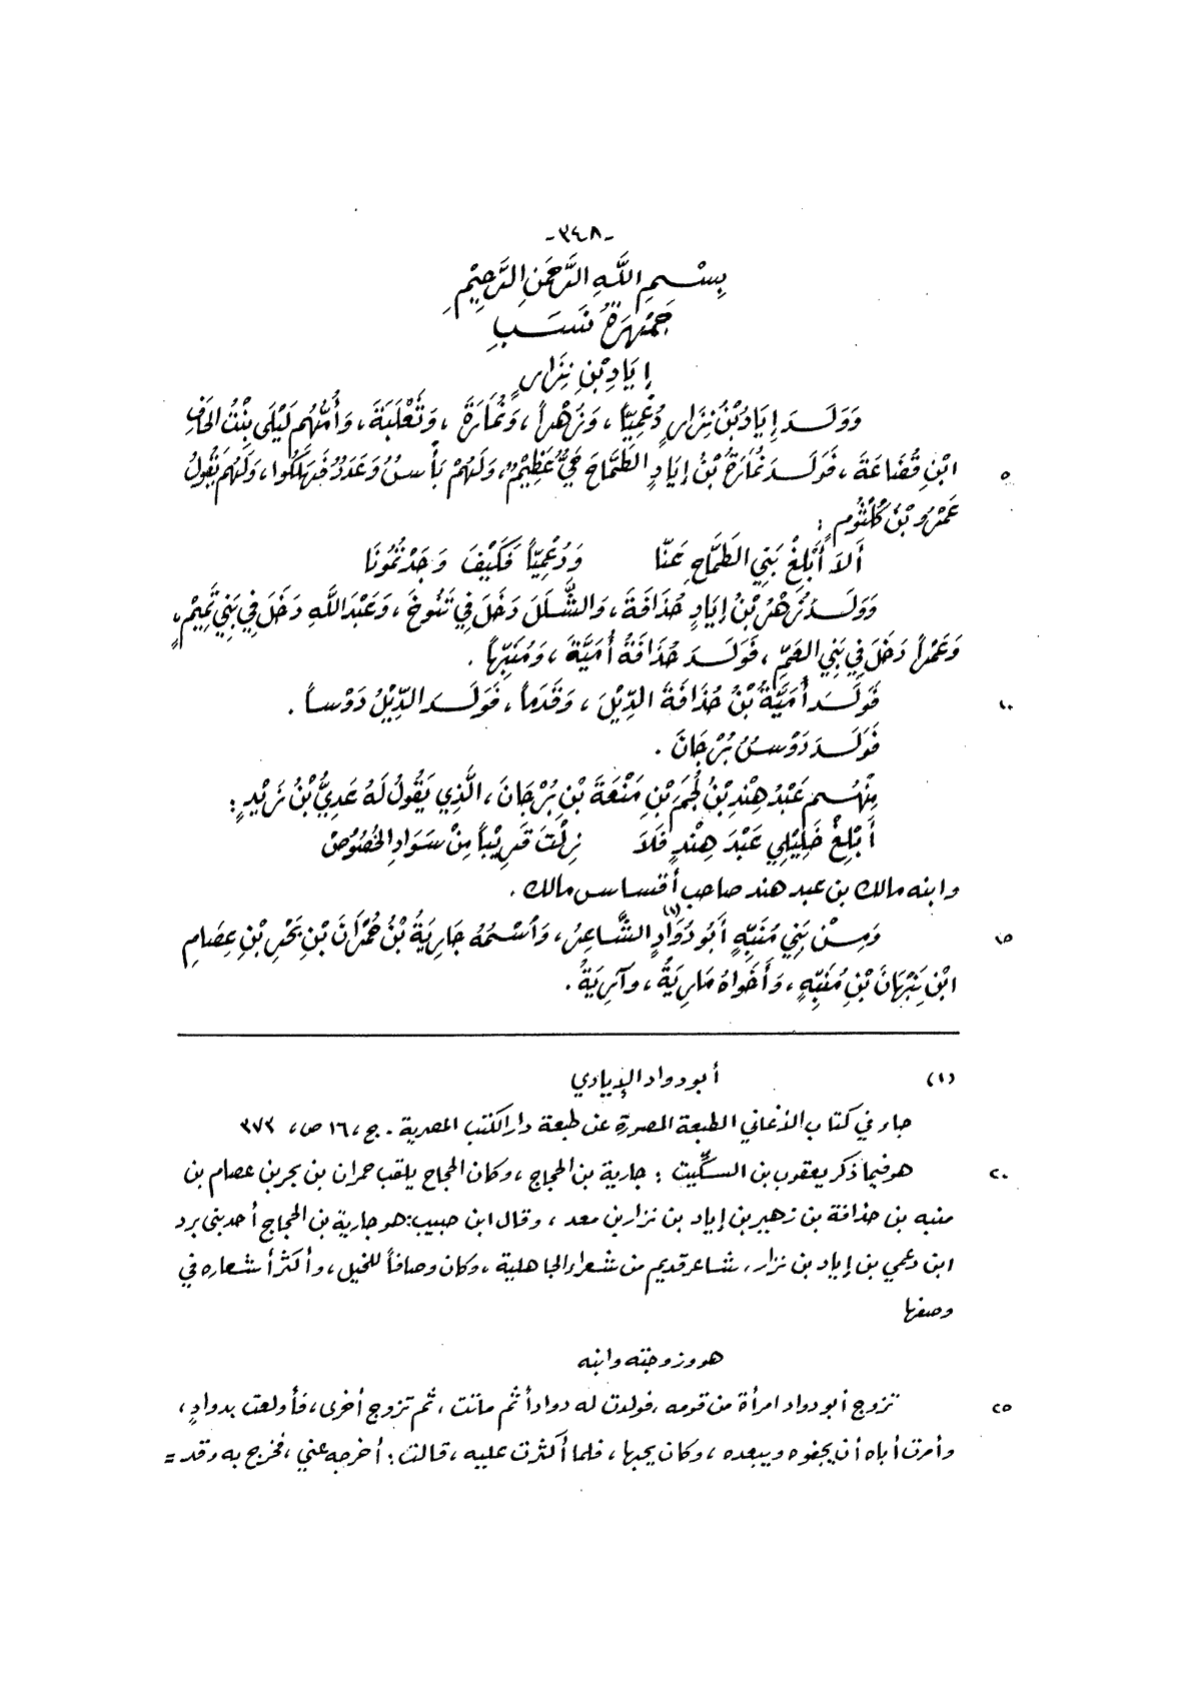 -٣٤٨-
بِسْمِ اللَّهِ الرَّحْمَنِ الرَّحِيْمِ
جَمْهَرَةُ نَسَبِ
إِيَادِ بْنِ نِزَارٍ
وَوَلَدَ إِيَادُ بْنُ نِزَارٍ دُعْمِيّاً، وَزُهْراً، وَنُمَارَةَ، وَثَعْلَبَةَ، وَأُمُّهُم لَيْلَى بِنْتُ الحَافِ
٥ ابْنِ قُضَاعَةَ، فَوَلَدَ نُمَارَةُ بْنُ إِيَادٍ الطَّمَّاحَ حَيٌّ عَظِيْمٌ، وَلَهُمْ بَأْسٌ وَعَدَدٌ فَهَلَكُوا، وَلَهُم يَقُولُ
عَمْرُو بْنُ كُلْثُومٍ:
أَلاَ أَبْلِغْ بَنِي الطَّمَّاحِ عَنَّا وَدُعْمِيّاً فَكَيْفَ وَجَدْتُمُونَا
وَوَلَدَ زُهْرُ بْنُ إِيَادٍ حُذَافَةَ، وَالشَّلَلَ دَخَلَ فِي تَنُوخَ، وَعَبْدَ اللَّهِ دَخَلَ فِي بَنِي تَمِيْمٍ،
وَعَمْراً دَخَلَ فِي بَنِي العَمِّ، فَوَلَدَ حُذَافَةُ أُمَيَّةَ، وَمُنَبِّهاً.
١٠ فَوَلَدَ أُمَيَّةُ بْنُ حُذَافَةَ الدِّيْلَ، وَقَدَماً، فَوَلَدَ الدِّيْلُ دَوْساً.
فَوَلَدَ دَوْسٌ بُرْجَانَ.
مِنْهُم عَبْدُ هِنْدِ بْنُ لُجَمِ بْنِ مَنْعَةَ بْنِ بُرْجَانَ، الَّذِي يَقُولُ لَهُ عَدِيُّ بْنُ زَيْدٍ:
أَبْلِغْ خَلِيْلِي عَبْدَ هِنْدٍ فَلاَ زِلْتَ قَرِيْباً مِنْ سَوَادِ الخُصُوْصْ
وابنه مالك بن عبد هند صاحب أقساس مالك.
١٥ وَمِنْ بَنِي مُنَبِّهٍ أَبُو دُوَادٍ(١) الشَّاعِرُ، وَاسْمُهُ جَارِيَةُ بْنُ حُمْرَانَ بْنِ بَحْرِ بْنِ عِصَامِ
ابْنِ نَبْهَانَ بْنِ مُنَبِّهٍ، وَأَخَوَاهُ مَارِيَةُ، وَآرِيَةُ.
(١) أبو دواد الإيادي
جاء في كتاب الأغاني الطبعة المصورة عن طبعة دار الكتب المصرية. ج، ١٦ ص، ٣٧٣
٢٠ هو فيما ذكر يعقوب بن السكّيت: جارية بن الحجاج، وكان الحجاج يلقب حمران بن بحر بن عصام بن
منبه بن حذافة بن زهير بن إياد بن نزار بن معد، وقال ابن حبيب: هو جارية بن الحجاج أحد بني برد
ابن دعمي بن إياد بن نزار، شاعر قديم من شعراء الجاهلية، وكان وصافاً للخيل، وأكثر أشعاره في
وصفها
هو وزوجته وابنه
٢٥ تزوج أبو دواد امرأة من قومه، فولدت له دواداً ثم ماتت، ثم تزوج أخرى، فأولعت بدوادٍ،
وأمرت أباه أن يجفوه ويبعده، وكان يحبها، فلما أكثرت عليه، قالت: أخرجه عني، فخرج به وقد =